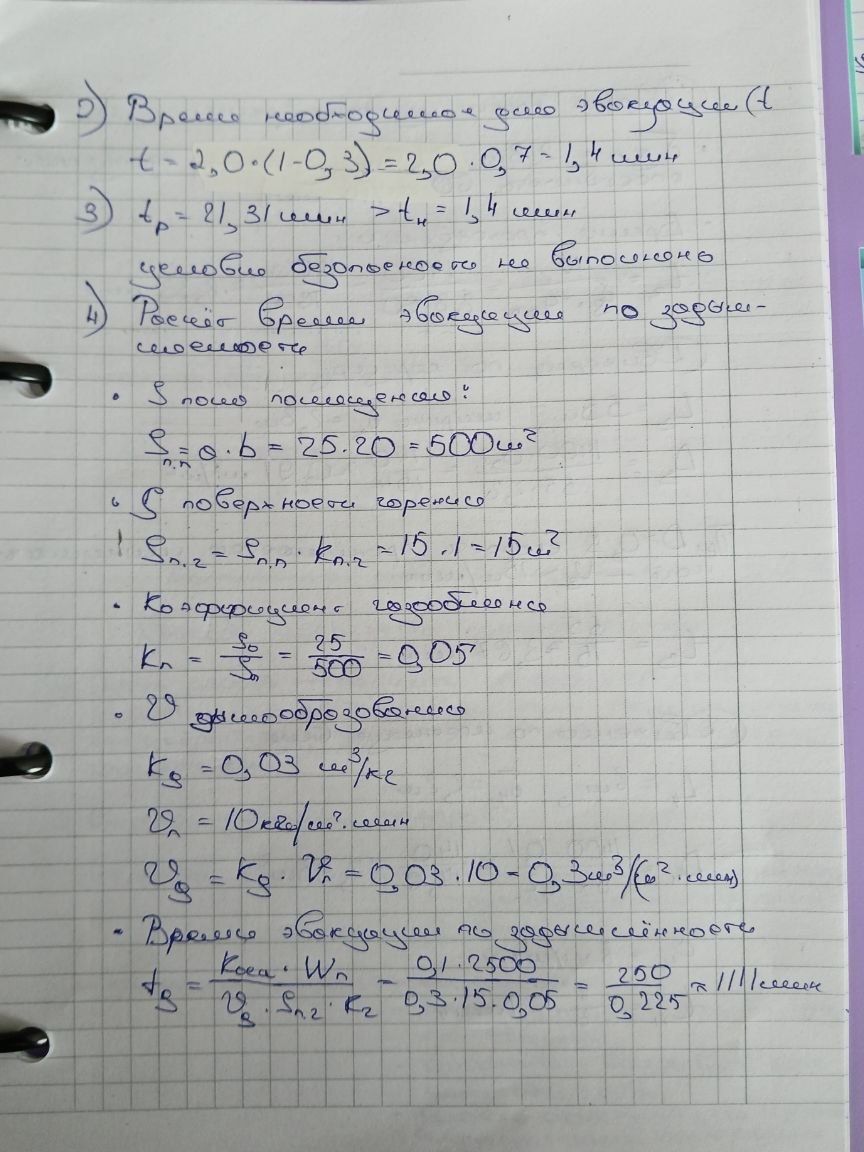 2) Время необходимое для эвакуации (t
t = 2,0·(1-0,3) = 2,0·0,7 = 1,4 мин
3) tр = 21,31 мин > tн = 1,4 мин
условие безопасности не выполнено
4) Расчёт время эвакуации по задым-
ляемости
• S пола помещения:
Sп.п = a·b = 25·20 = 500 м²
• S поверхности горения
Sп.г = Sп.п · kп.г = 15·1 = 15 м²
• Коэффициент газообмена
Kп = S₀/Sп = 25/500 = 0,05
• V дымообразования
Kд = 0,03 м³/кг
Vп = 10 кг/м²·мин
Vд = Kд · Vп = 0,03·10 = 0,3 м³/(м²·мин)
• Время эвакуации по задымлённости
tд = Kосл·Wп / Vд·Sп.г·Kг = 0,1·2500 / 0,3·15·0,05 = 250 / 0,225 ≈ 1111 мин